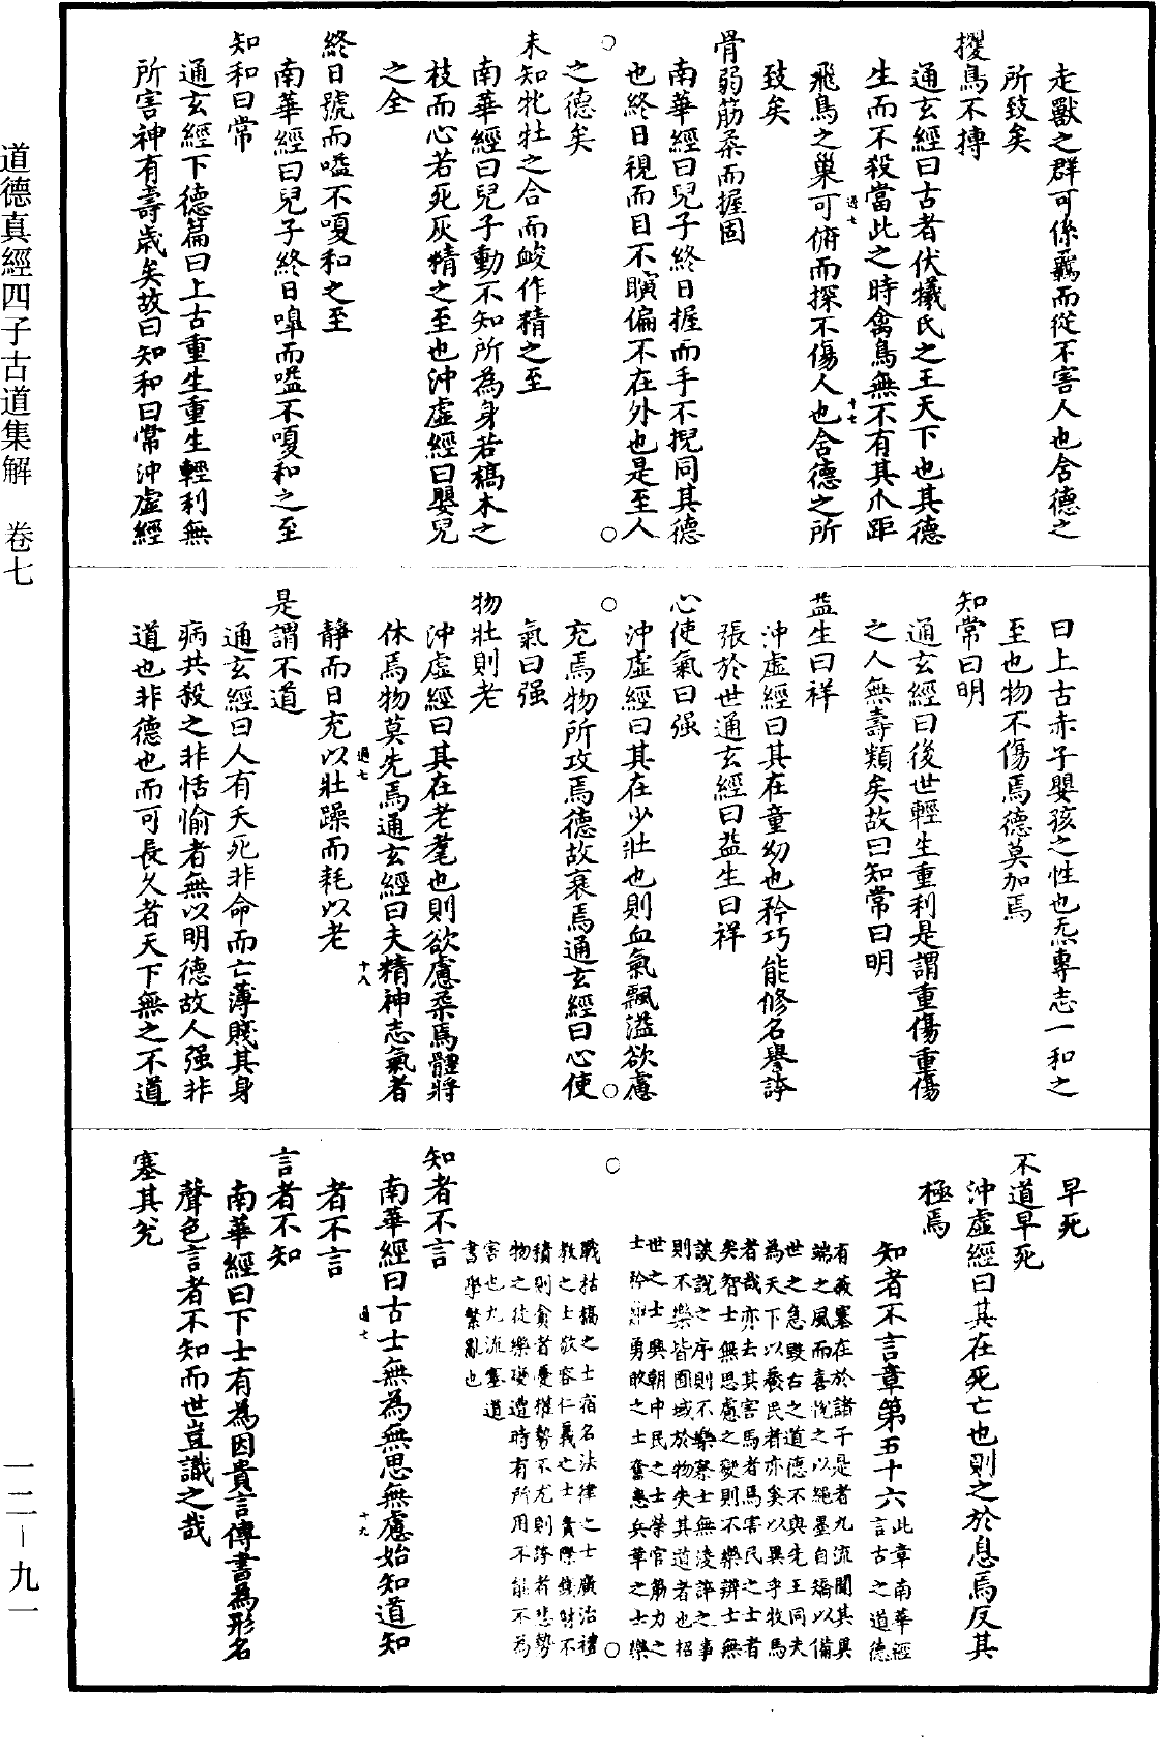 走獸之群可係羈而從不害人也含德之
所致矣
攫鳥不搏
通玄經曰古者伏犧氏之王天下也其德
生而不殺當此之時禽鳥無不有其爪距
飛鳥之巢可俯而探不傷人也含德之所
致矣
骨弱筋柔而握固
南華經曰兒子終日握而手不掜同其德
也終日視而目不瞚偏不在外也是至人
之德矣
未知牝牡之合而䘒作精之至
南華經曰兒子動不知所為身若槁木之
枝而心若死灰精之至也沖虛經曰嬰兒
之全
終日號而嗌不嗄和之至
南華經曰兒子終日嘷而嗌不嗄和之至
知和曰常
通玄經下德篇曰上古重生重生輕利無
所害神有壽歲矣故曰知和曰常沖虛經
曰上古赤子嬰孩之性也炁專志一和之
至也物不傷焉德莫加焉
知常曰明
通玄經曰後世輕生重利是謂重傷重傷
之人無壽類矣故曰知常曰明
益生曰祥
沖虛經曰其在童幼也矜巧能修名譽誇
張於世通玄經曰益生曰祥
心使氣曰强
沖虛經曰其在少壯也則血氣飄溢欲慮
充焉物所攻焉德故衰焉通玄經曰心使
氣曰强
物壯則老
沖虛經曰其在老耄也則欲慮柔焉體將
休焉物莫先焉通玄經曰夫精神志氣者
靜而日充以壯躁而耗以老
是謂不道
通玄經曰人有夭死非命而亡薄賤其身
病共殺之非恬愉者無以明德故人强非
道也非德也而可長久者天下無之不道
早死
不道早死
沖虛經曰其在死亡也則之於息焉反其
極焉
知者不言章第五十六 此章南華經
言古之道德
有蔽塞在於諸子是者九流聞其異
端之風而喜悅之以繩墨自矯以備
世之急毀古之道德不與先王同夫
為天下以養民者亦奚以異乎牧馬
者哉亦去其害馬者馬害民之士者
矣智士無思慮之變則不樂辨士無
談說之序則不樂察士無淩誶之事
則不樂皆囿域於物失其道者也招
世之士興朝中民之士榮官筋力之
士矜 勇敢之士奮患兵革之士樂
戰枯槁之士宿名法律之士廣治禮
教之士敬容仁義之士貴際錢財不
積則貪者憂權勢不尤則誇者悲勢
物之徒樂變遭時有所用不能不為
害也九流塞道
書學繁亂也
知者不言
南華經曰古士無為無思無慮始知道知
者不言
言者不知
南華經曰下士有為因貴言傳書為形名
聲色言者不知而世豈識之哉
塞其兌
過七
十七
過七
十八
過七
十九
道德真經四子古道集解 卷七
一二—九一